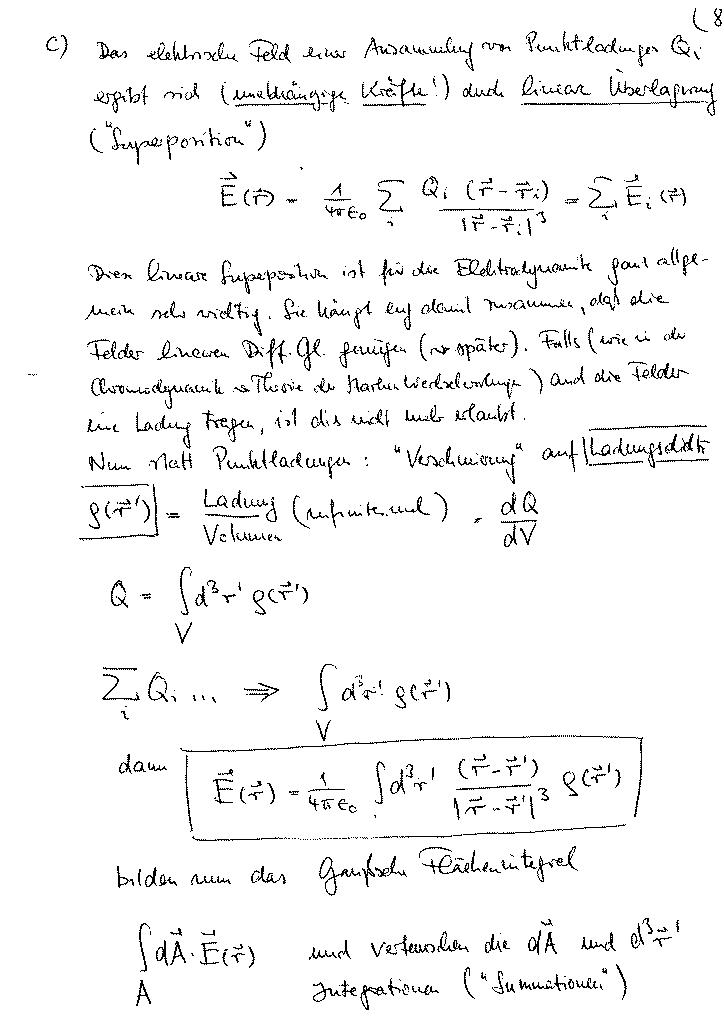 (8
c) Das elektrische Feld einer Ansammlung von Punktladungen Qᵢ
ergibt sich (unabhängige Kräfte!) durch lineare Überlagerung
("Superposition")
E⃗(r⃗) = 1/4πε₀ ∑ᵢ Qᵢ (r⃗-r⃗ᵢ)/|r⃗-r⃗ᵢ|³ = ∑ᵢ E⃗ᵢ(r⃗)
Diese lineare Superposition ist für die Elektrodynamik ganz allge-
mein sehr wichtig. Sie hängt eng damit zusammen, daß die
Felder linearen Diff. Gl. genügen (↝ später). Falls (wie in der
Chromodynamik ↝ Theorie der starken Wechselwirkungen) auch die Felder
eine Ladung tragen, ist dies nicht mehr erlaubt.
Nun statt Punktladungen: "Verschmierung" auf Ladungsdichte
ρ(r⃗') = Ladung/Volumen (infinitesimal) = dQ/dV
Q = ∫_V d³r' ρ(r⃗')
∑ᵢ Qᵢ ... ⇒ ∫_V d³r' ρ(r⃗')
dann E⃗(r⃗) = 1/4πε₀ ∫ d³r' (r⃗-r⃗')/|r⃗-r⃗'|³ ρ(r⃗')
bilden nun das Gaußsche Flächenintegral
∫_A dA⃗·E⃗(r⃗) und vertauschen die dA⃗ und d³r⃗'
Integrationen ("Summationen")